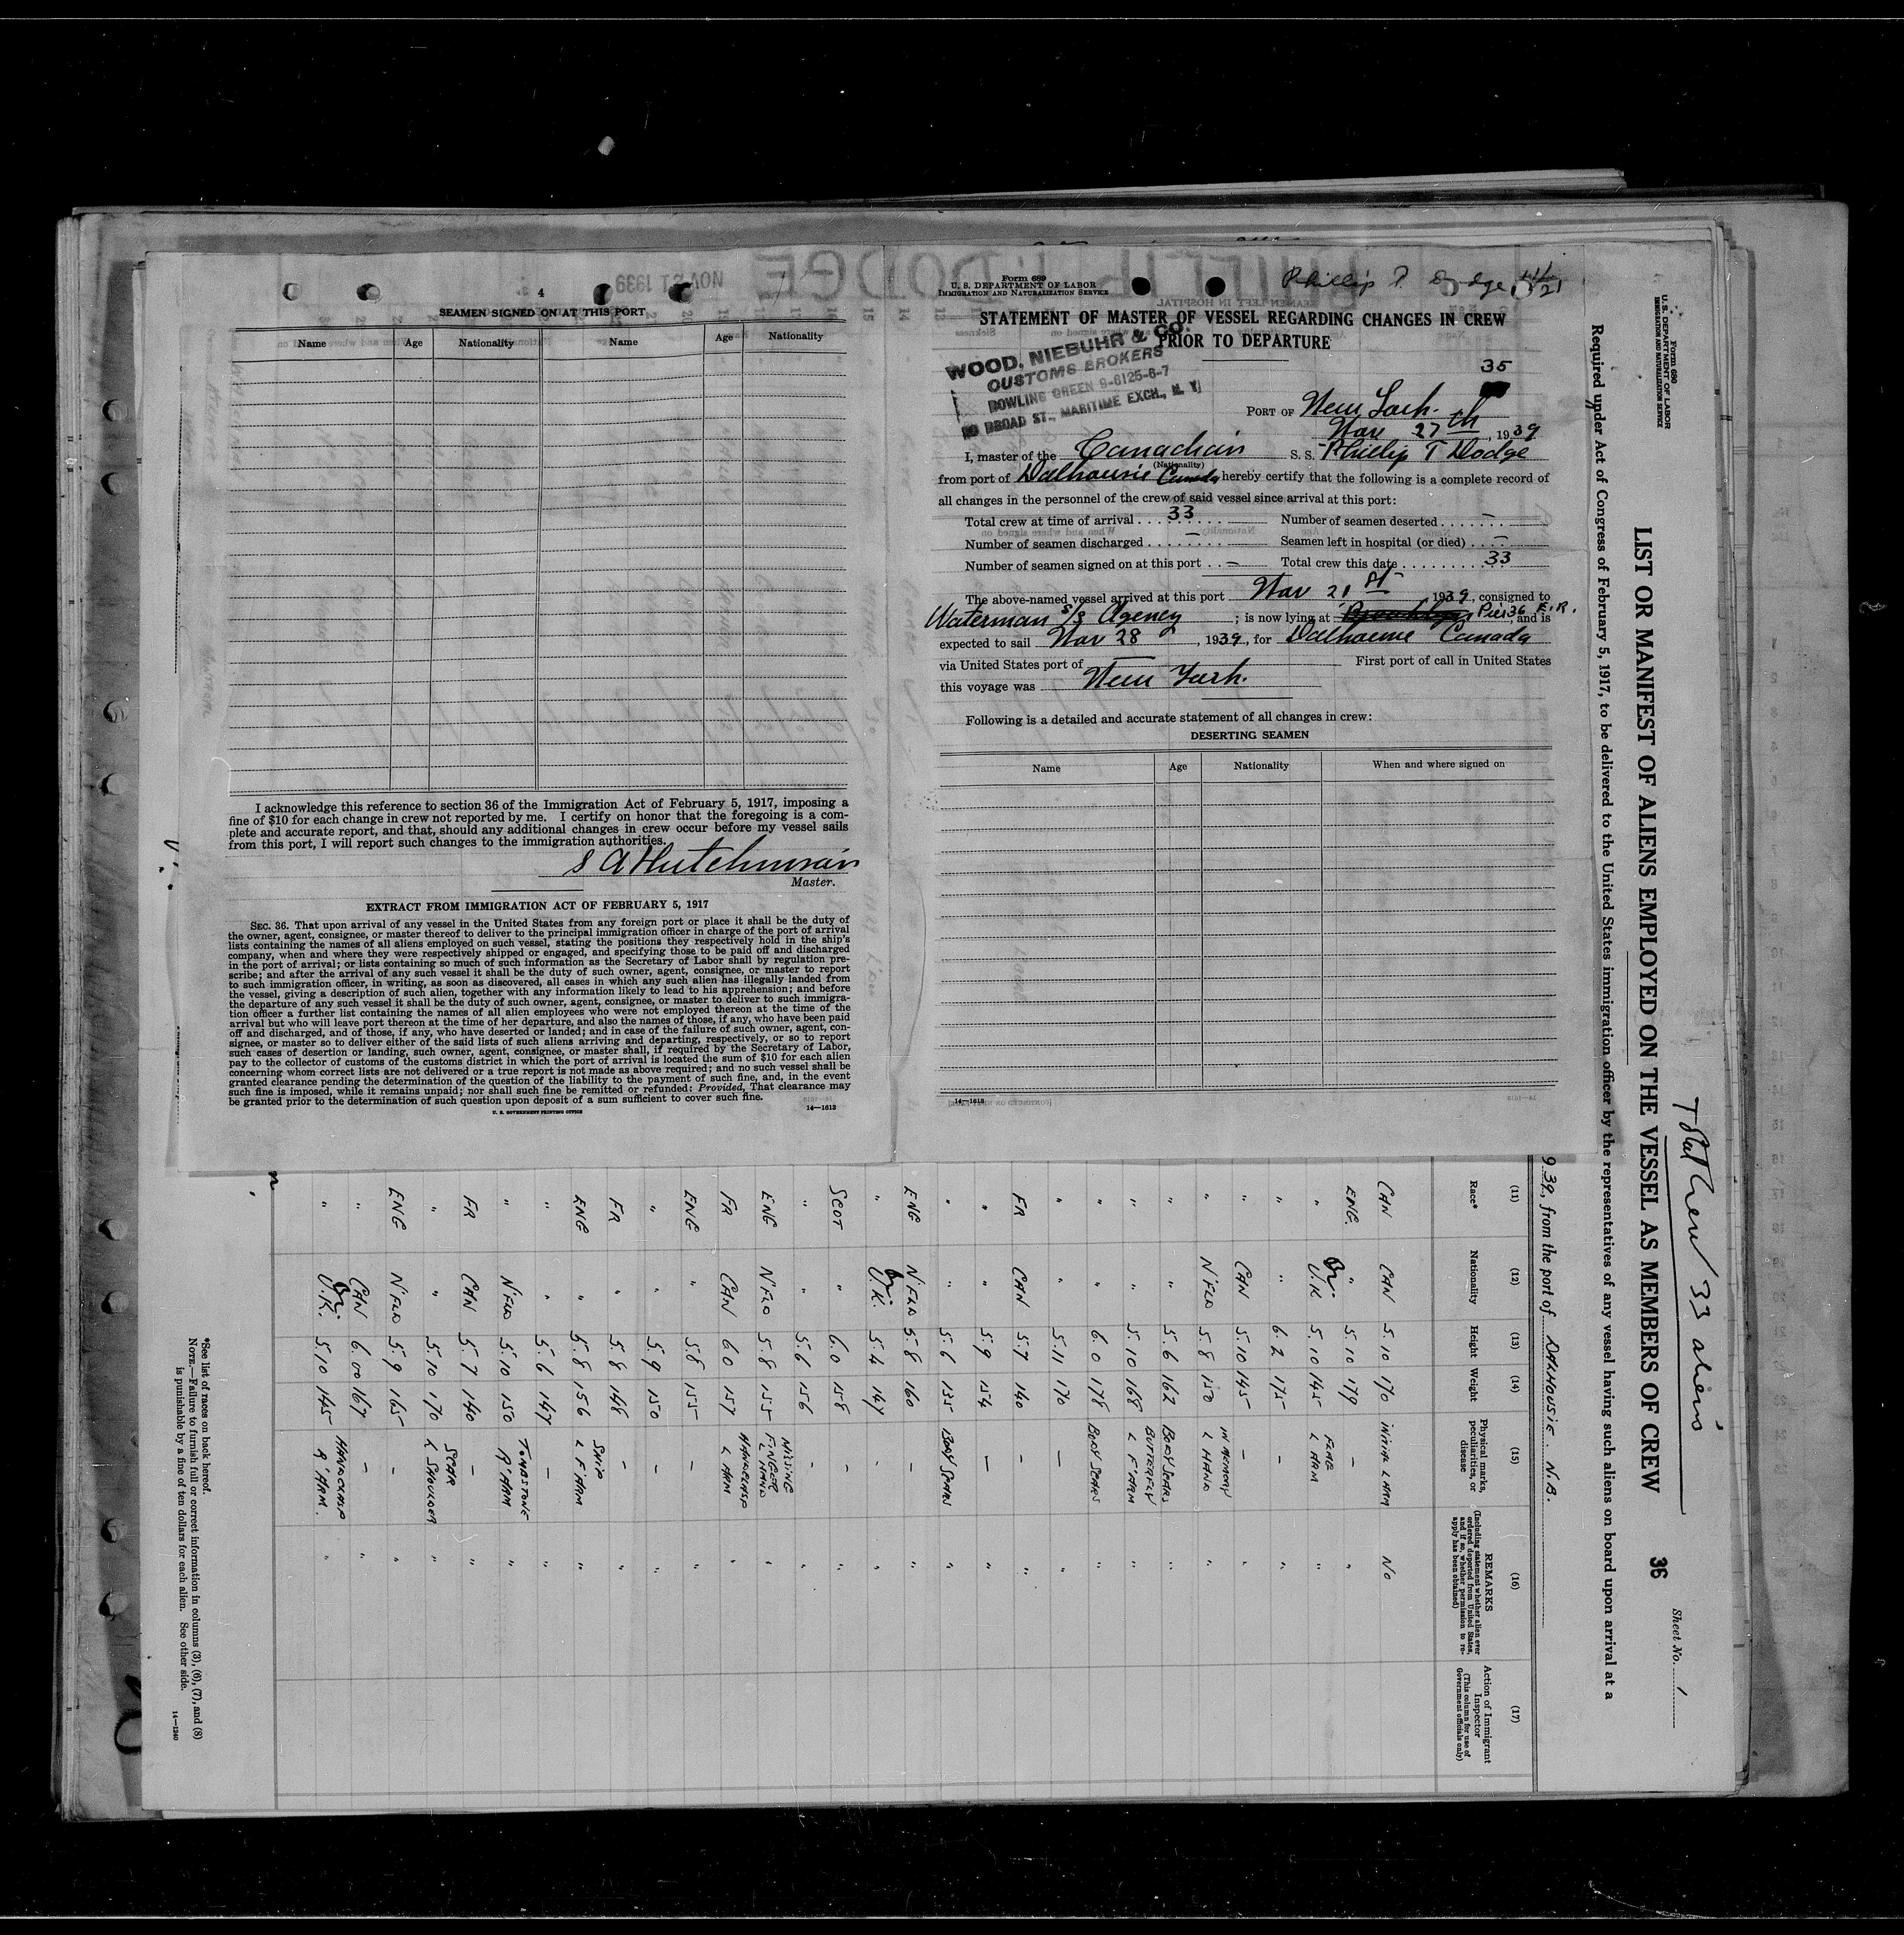 4
SEAMEN SIGNED ON AT THIS PORT
Name Age Nationality Name Age Nationality
I acknowledge this reference to section 36 of the Immigration Act of February 5, 1917, imposing a
fine of $10 for each change in crew not reported by me. I certify on honor that the foregoing is a com-
plete and accurate report, and that, should any additional changes in crew occur before my vessel sails
from this port, I will report such changes to the immigration authorities.
S A Hutchinson
Master.
EXTRACT FROM IMMIGRATION ACT OF FEBRUARY 5, 1917
SEC. 36. That upon arrival of any vessel in the United States from any foreign port or place it shall be the duty of
the owner, agent, consignee, or master thereof to deliver to the principal immigration officer in charge of the port of arrival
lists containing the names of all aliens employed on such vessel, stating the positions they respectively hold in the ship's
company, when and where they were respectively shipped or engaged, and specifying those to be paid off and discharged
in the port of arrival; or lists containing so much of such information as the Secretary of Labor shall by regulation pre-
scribe; and after the arrival of any such vessel it shall be the duty of such owner, agent, consignee, or master to report
to such immigration officer, in writing, as soon as discovered, all cases in which any such alien has illegally landed from
the vessel, giving a description of such alien, together with any information likely to lead to his apprehension; and before
the departure of any such vessel it shall be the duty of such owner, agent, consignee, or master to deliver to such immigra-
tion officer a further list containing the names of all alien employees who were not employed thereon at the time of the
arrival but who will leave port thereon at the time of her departure, and also the names of those, if any, who have been paid
off and discharged, and of those, if any, who have deserted or landed; and in case of the failure of such owner, agent, con-
signee, or master so to deliver either of the said lists of such aliens arriving and departing, respectively, or so to report
such cases of desertion or landing, such owner, agent, consignee, or master shall, if required by the Secretary of Labor,
pay to the collector of customs of the customs district in which the port of arrival is located the sum of $10 for each alien
concerning whom correct lists are not delivered or a true report is not made as above required; and no such vessel shall be
granted clearance pending the determination of the question of the liability to the payment of such fine, and, in the event
such fine is imposed, while it remains unpaid; nor shall such fine be remitted or refunded: Provided, That clearance may
be granted prior to the determination of such question upon deposit of a sum sufficient to cover such fine.
U. S. GOVERNMENT PRINTING OFFICE 14—1613
Form 689
U. S. DEPARTMENT OF LABOR
IMMIGRATION AND NATURALIZATION SERVICE
Phillip T. Dodge 11/21
STATEMENT OF MASTER OF VESSEL REGARDING CHANGES IN CREW
PRIOR TO DEPARTURE
WOOD, NIEBUHR & CO.
CUSTOMS BROKERS
BOWLING GREEN 9-6125-6-7
80 BROAD ST., MARITIME EXCH., N. Y.
35
PORT OF New York
Nov 27th, 1939
I, master of the Canadian S. S. Phillip T Dodge
(Nationality)
from port of Dalhousie Canada hereby certify that the following is a complete record of
all changes in the personnel of the crew of said vessel since arrival at this port:
Total crew at time of arrival 33 Number of seamen deserted –
Number of seamen discharged – Seamen left in hospital (or died) –
Number of seamen signed on at this port – Total crew this date 33
The above-named vessel arrived at this port Nov 21st 1939, consigned to
Waterman s/s Agency; is now lying at Pier 36 E.R. and is
expected to sail Nov 28, 1939, for Dalhousie Canada
via United States port of — First port of call in United States
this voyage was New York.
Following is a detailed and accurate statement of all changes in crew:
DESERTING SEAMEN
Name Age Nationality When and where signed on
14—1613
Form 680
U. S. DEPARTMENT OF LABOR
IMMIGRATION AND NATURALIZATION SERVICE
Total Crew 33 aliens
Sheet No. 1
LIST OR MANIFEST OF ALIENS EMPLOYED ON THE VESSEL AS MEMBERS OF CREW 36
Required under Act of Congress of February 5, 1917, to be delivered to the United States immigration officer by the representatives of any vessel having such aliens on board upon arrival at a
939, from the port of DALHOUSIE. N.B.
(11) (12) (13) (14) (15) (16) (17)
Race* Nationality Height Weight Physical marks, peculiarities, or disease REMARKS (Including statement whether alien ever ordered deported from United States, and if so, whether permission to re-apply has been obtained) Action of Immigrant Inspector (This column for use of Government officials only)
CAN CAN 5.10 170 INITIAL L ARM NO
ENG. " 5.10 179 – "
" Br. U.K 5.10 145 FLAG L ARM "
" " 6.2 175 – "
" CAN 5.10 145 – "
" N'FLD 5.8 150 IN MEMORY L HAND "
" " 5.6 162 BODY SCARS "
" " 5.10 168 BUTTERFLY L F'ARM "
" " 6.0 178 BODY SCARS "
" " 5.11 170 – "
FR CAN 5.7 140 – "
" " 5.9 154 – "
" " 5.6 135 BODY SCARS "
ENG N'FLD 5.8 160 – "
" Br. U.K. 5.4 147 – "
SCOT " 6.0 158 – "
" " 5.6 156 – "
ENG N'FLD 5.8 155 MISSING FINGER L HAND "
FR CAN 6.0 157 HANDCLASP L ARM "
ENG " 5.8 155 – "
" " 5.9 150 – "
FR " 5.8 148 – "
ENG " 5.8 156 SHIP L F'ARM "
" " 5.6 147 – "
" N'FLD 5.10 150 TOMBSTONE R'ARM "
FR CAN 5.7 140 – "
" " 5.10 170 SCAR L SHOULDER "
ENG N'FLD 5.9 165 – "
" CAN 6.00 167 – "
" Br. U.K. 5.10 145 HANDCLASP R'ARM. "
*See list of races on back hereof.
NOTE.—Failure to furnish full or correct information in columns (3), (6), (7), and (8)
is punishable by a fine of ten dollars for each alien. See other side.
14—1240